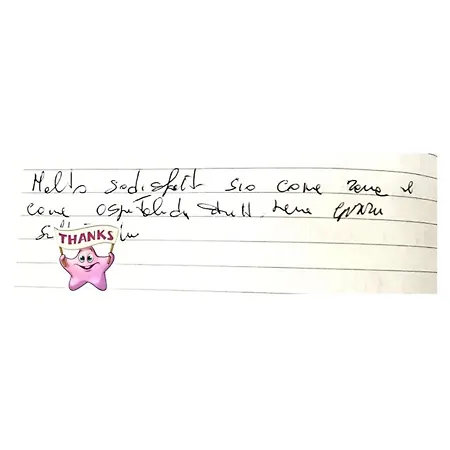 Molto sodisfatti sio come zona e
come ospitalità tutt. bene grazie
THANKS